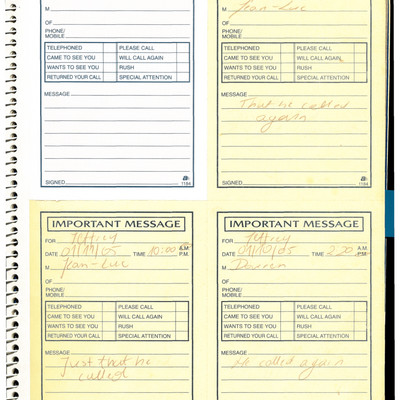 M
OF
PHONE/
MOBILE
TELEPHONED PLEASE CALL
CAME TO SEE YOU WILL CALL AGAIN
WANTS TO SEE YOU RUSH
RETURNED YOUR CALL SPECIAL ATTENTION
MESSAGE
SIGNED
1184
M Jean-Luc
OF
PHONE/
MOBILE
TELEPHONED PLEASE CALL
CAME TO SEE YOU WILL CALL AGAIN
WANTS TO SEE YOU RUSH
RETURNED YOUR CALL SPECIAL ATTENTION
MESSAGE
That he called
again
SIGNED
1184
IMPORTANT MESSAGE
FOR Jeffrey
DATE 09/11/05 TIME 10:00 A.M. P.M.
M Jean-Luc
OF
PHONE/
MOBILE
TELEPHONED PLEASE CALL
CAME TO SEE YOU WILL CALL AGAIN
WANTS TO SEE YOU RUSH
RETURNED YOUR CALL SPECIAL ATTENTION
MESSAGE
Just that he
called
IMPORTANT MESSAGE
FOR Jeffrey
DATE TIME 2:20 A.M. P.M.
M
OF
PHONE/
MOBILE
TELEPHONED PLEASE CALL
CAME TO SEE YOU WILL CALL AGAIN
WANTS TO SEE YOU RUSH
RETURNED YOUR CALL SPECIAL ATTENTION
MESSAGE
He called again